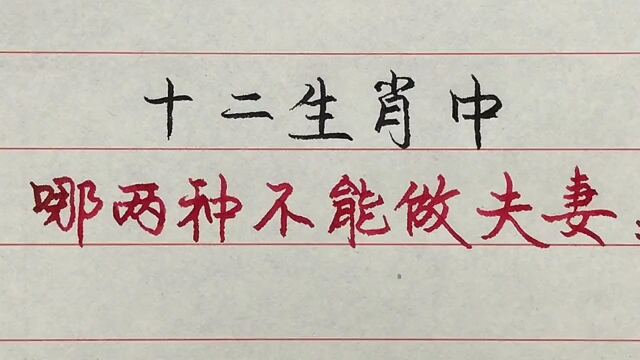 十二生肖中
哪两种不能做夫妻